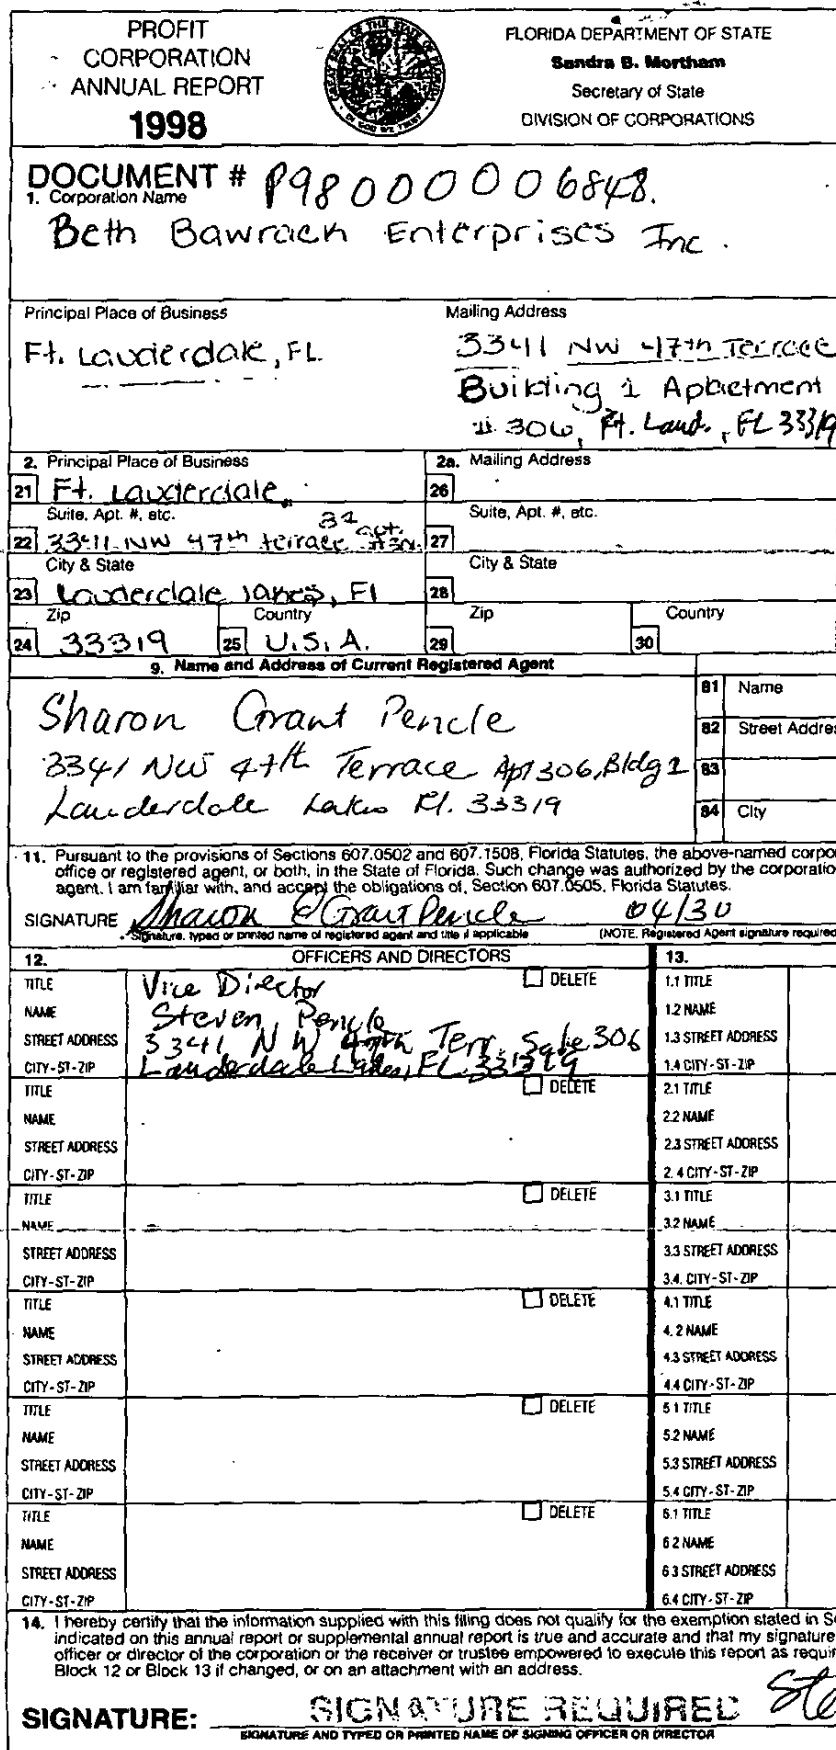 PROFIT
CORPORATION
ANNUAL REPORT
1998
FLORIDA DEPARTMENT OF STATE
Sandra B. Mortham
Secretary of State
DIVISION OF CORPORATIONS
DOCUMENT # P98000006848.
1. Corporation Name
Beth Bawrach Enterprises Inc.
Principal Place of Business
Mailing Address
Ft. Lauderdale, FL
3341 NW 47th Terrace
Building 1 Apbartment
# 306, Ft. Laud., FL 33319
2. Principal Place of Business
2a. Mailing Address
21 Ft. Lauderdale
26
Suite, Apt. #, etc.
Suite, Apt. #, etc.
22 3341 NW 47th terrace apt.
27
City & State
City & State
23 Lauderdale lakes, Fl
28
Zip
Country
Zip
Country
24 33319
25 U.S.A.
29
30
9. Name and Address of Current Registered Agent
Sharon Grant Pencle
3341 NW 47th Terrace Apt 306, Bldg 1
Lauderdale Lakes Fl. 33319
81 Name
82 Street Addre
83
84 City
11. Pursuant to the provisions of Sections 607.0502 and 607.1508, Florida Statutes, the above-named corpo
office or registered agent, or both, in the State of Florida. Such change was authorized by the corporatio
agent. I am familiar with, and accept the obligations of, Section 607.0505, Florida Statutes.
SIGNATURE Sharon E Grant Pencle 04/30
Signature, typed or printed name of registered agent and title if applicable
(NOTE. Registered Agent signature required
12. OFFICERS AND DIRECTORS
13.
TITLE Vice Director DELETE
NAME Steven Pencle
STREET ADDRESS 3341 NW 47th Terr. 306
CITY-ST-ZIP Lauderdale Lakes, FL 33319
1.1 TITLE
1.2 NAME
1.3 STREET ADDRESS
1.4 CITY-ST-ZIP
TITLE DELETE
NAME
STREET ADDRESS
CITY-ST-ZIP
2.1 TITLE
2.2 NAME
2.3 STREET ADDRESS
2.4 CITY-ST-ZIP
TITLE DELETE
NAME
STREET ADDRESS
CITY-ST-ZIP
3.1 TITLE
3.2 NAME
3.3 STREET ADDRESS
3.4. CITY-ST-ZIP
TITLE DELETE
NAME
STREET ADDRESS
CITY-ST-ZIP
4.1 TITLE
4.2 NAME
4.3 STREET ADDRESS
4.4 CITY-ST-ZIP
TITLE DELETE
NAME
STREET ADDRESS
CITY-ST-ZIP
5.1 TITLE
5.2 NAME
5.3 STREET ADDRESS
5.4 CITY-ST-ZIP
TITLE DELETE
NAME
STREET ADDRESS
CITY-ST-ZIP
6.1 TITLE
6.2 NAME
6.3 STREET ADDRESS
6.4 CITY-ST-ZIP
14. I hereby certify that the information supplied with this filing does not qualify for the exemption stated in S
indicated on this annual report or supplemental annual report is true and accurate and that my signature
officer or director of the corporation or the receiver or trustee empowered to execute this report as requir
Block 12 or Block 13 if changed, or on an attachment with an address.
SIGNATURE: SIGNATURE REQUIRED Ste
SIGNATURE AND TYPED OR PRINTED NAME OF SIGNING OFFICER OR DIRECTOR